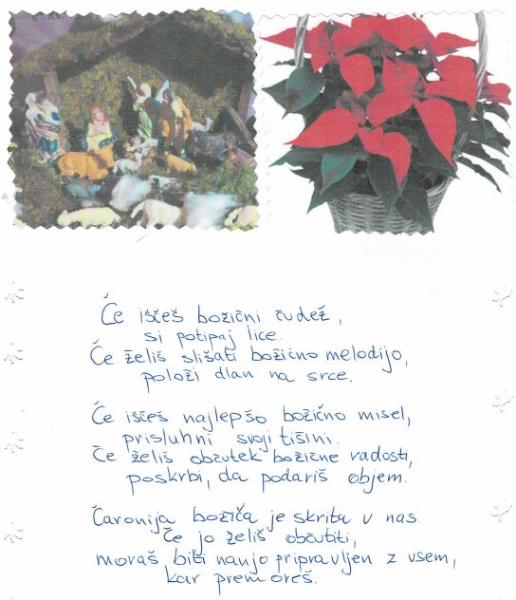 Če iščeš božični čudež,
si potipaj lice.
Če želiš slišati božično melodijo,
položi dlan na srce.
Če iščeš najlepšo božično misel,
prisluhni svoji tišini.
Če želiš občutek božične radosti,
poskrbi, da podariš objem.
Čarovnija božiča je skrita v nas.
Če jo želiš občutiti,
moraš biti nanjo pripravljen z vsem,
kar premoreš.